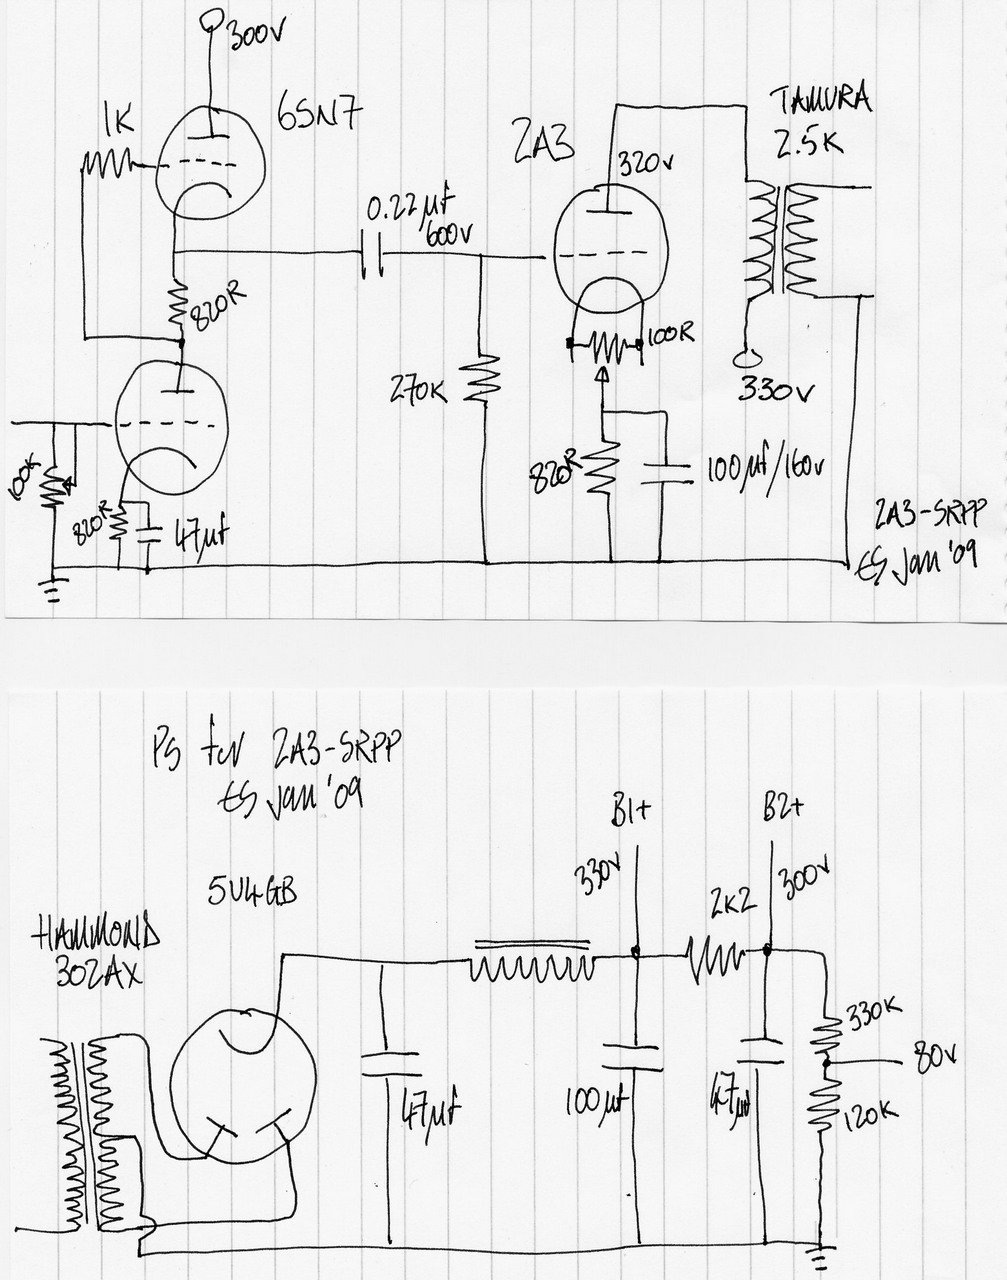 300V
1K
6SN7
2A3
TAMURA
2.5K
320V
0.22µf
600V
820R
100R
270K
330V
00K
820R
47µf
820R
100µf/160V
2A3-SRPP
ES Jan '09
PS for 2A3-SRPP
ES Jan '09
B1+
B2+
330V
300V
5U4GB
2K2
HAMMOND
302AX
330K
80V
47µf
100µf
47µf
120K